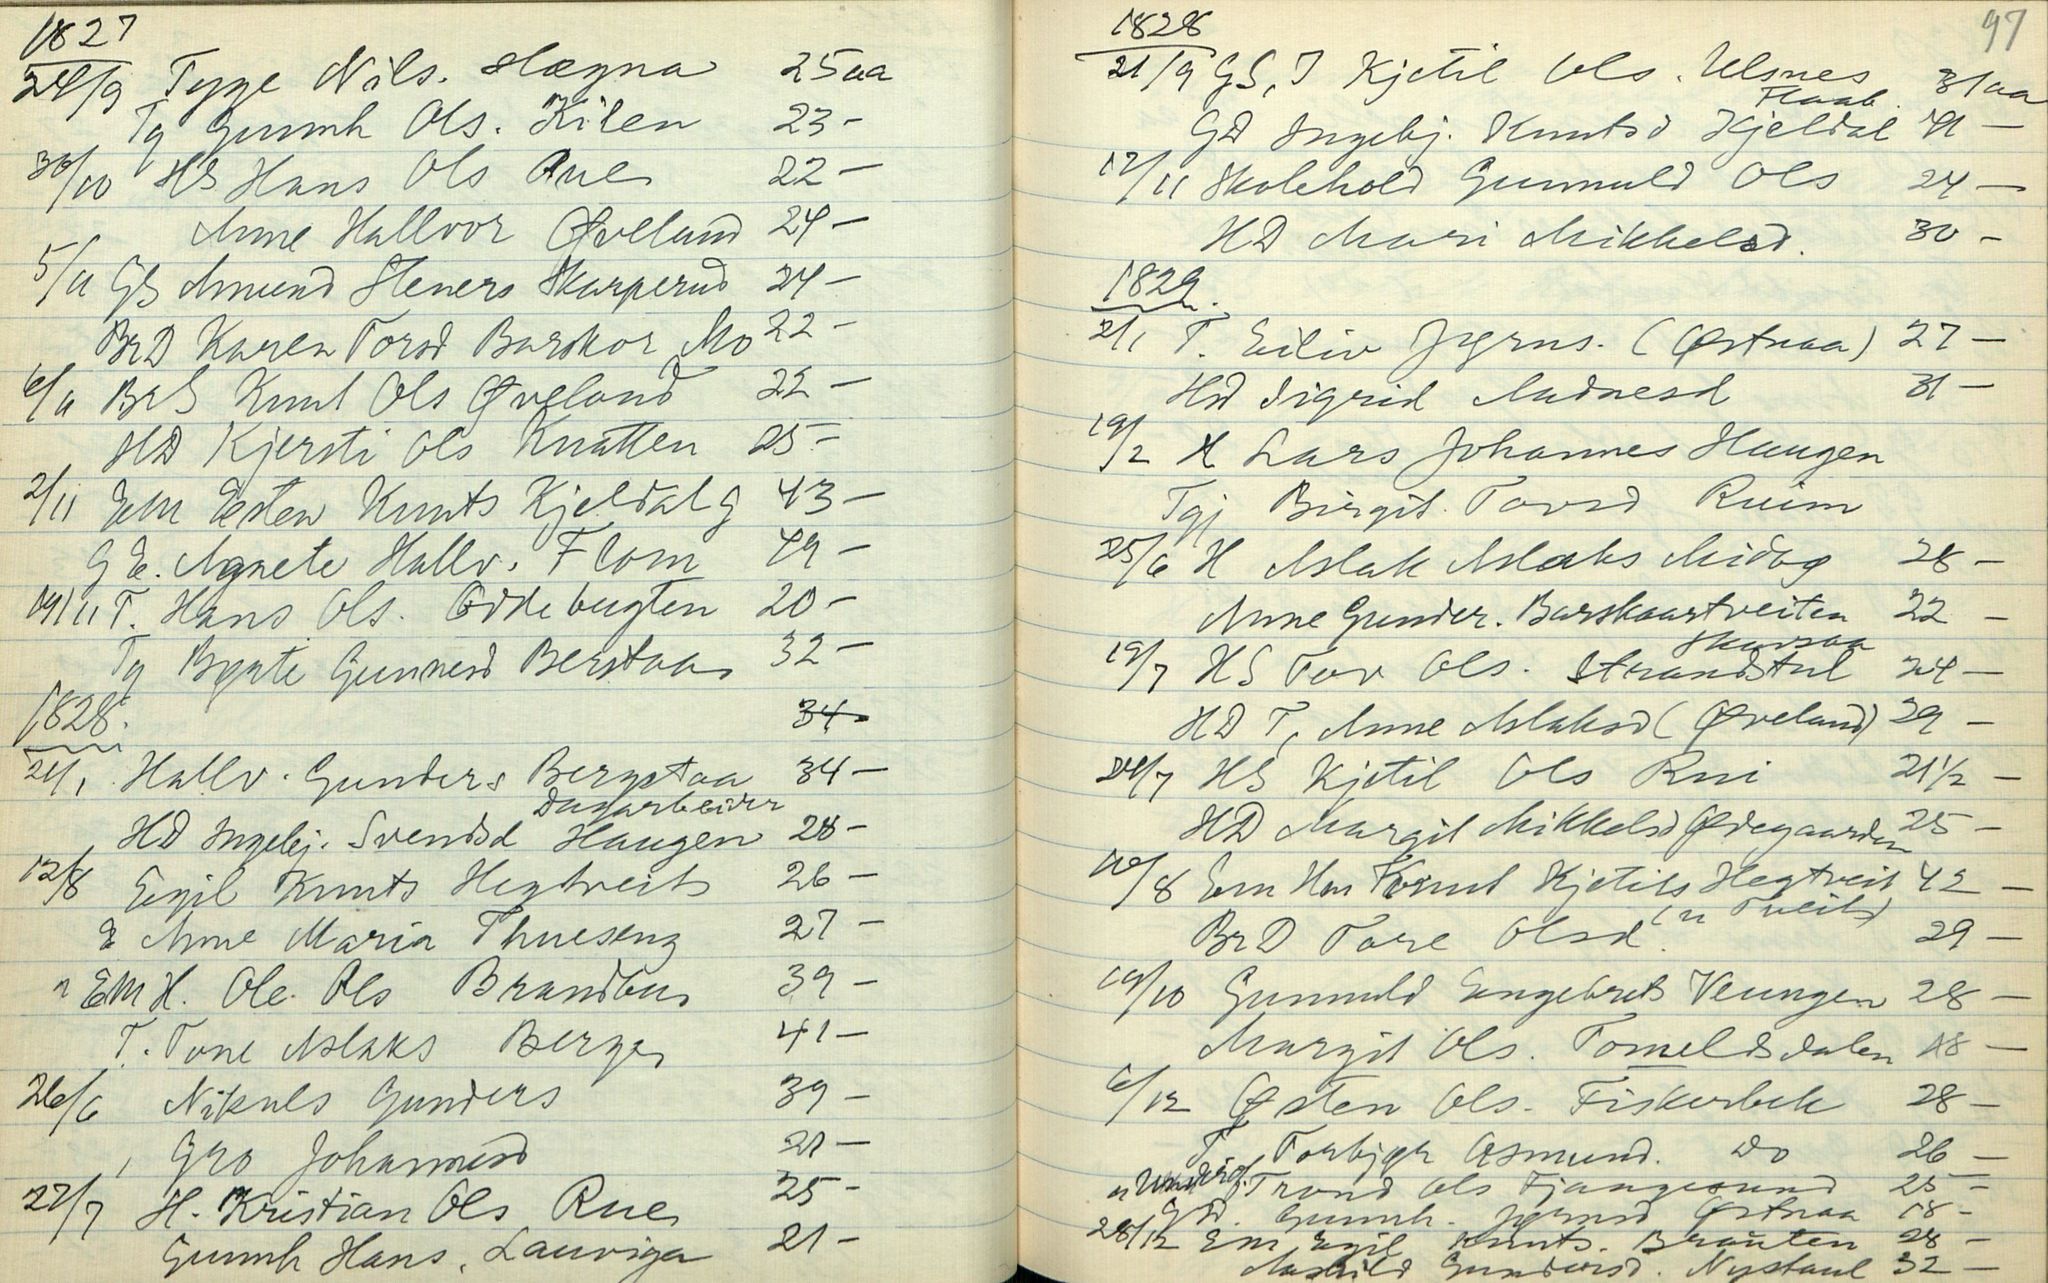 1827
24/9 Tyge Nils. Hægna 25 aa
Tg Gunnh Ols. Kilen 23 -
30/10 HS Hans Ols Rue 22 -
Anne Hallvor Øveland 24 -
5/11 GS Amund Steners Skarperud 24 -
BrD Karen Torsd Barskor Mo 22 -
6/11 BrS Knut Ols Øveland 22 -
HD Kjersti Ols Knutten 25 -
2/11 EM Østen Knuts Kjeldal g 43 -
G E. Agnete Hallv. Flom 49 -
19/11 T. Hans Ols. Oddebugten 20 -
Tg Byrte Gunnersd Berstaa 32 -
1828. 34
21/1 Hallv. Gunders Bergstaa 34 -
Dagarbeider
HD Ingebj. Svendsd Haugen 28 -
12/8 Egil Knuts Hegtveit 26 -
E Anne Maria Thuesens 27 -
" EM H. Ole Ols Brandbu 39 -
T. Tone Aslaks Berge 41 -
26/6 Nikuls Gunders 39 -
Gro Johannesd 21 -
27/7 H. Kristian Ols Rue 25 -
Gunnh Hans. Lauviga 21 -
97
1828
21/9 GS, I Kjetil Ols. Ulsnes 31 aa
Flaab.
GD Ingebj. Knutsd Kjeldal 41 -
12/11 Skolehold Gunnuld Ols 24 -
HD Mari Mikkelsd. 30 -
1829.
2/1 T. Eiliv Jørns. (Østnaa) 27 -
HD Sigrid Audnesd 31 -
19/2 H Lars Johannes Haugen
Tgj Birgit Tovsd Ruim
25/6 H Aslak Aslaks Midbø 28 -
Anne Gunder. Barskaartveiten 22 -
Skorsaa
19/7 HS Tov Ols. Strandstul 24 -
HD T, Anne Aslaksd (Øveland) 29 -
24/7 HS Kjetil Ols Rui 21 1/2 -
HD Margit Mikkelsd Ødegaarden 25 -
10/8 Em Hm Knut Kjetils Hegtveit 42 -
(n Tveit)
BrD Tore Olsd. 29 -
19/10 Gunnuld Engebrets Veungen 28 -
Margit Ols. Tomelidalen 18 -
6/12 Østen Ols. Fiskerbek 28 -
T Torbjør Asmund. Do 26 -
" Trond Ols Fjangesund 25 -
GD. Gunnh. Jørnsd Østnaa 18 -
28/12 Em Egil Knuts. Brauten 28 -
Aashild Gundersd. Nystaul 32 -